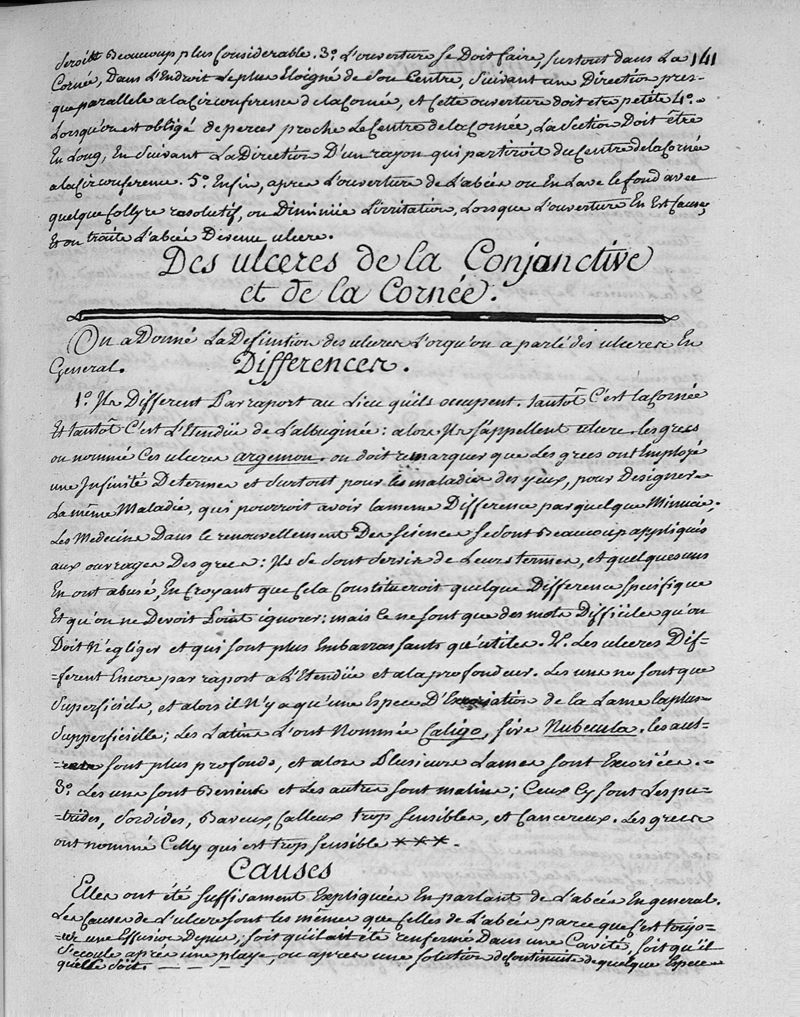 141
seroit Beaucoup plus Considerable. 3.º L'ouverture se Doit faire, surtout dans La
Cornée, Dans L'Endroit Le plus Eloigné de Son Centre, Suivant une Direction pres-
que parallele a la Circonference de la Cornée, et Cette ouverture doit etre petite 4.º
Lorsqu'on est obligé de percer proche Le Centre de la Cornée, La Section Doit être
En Long, En Suivant La Direction D'un rayon qui partiroit du Centre de la Cornée
a la Circonference. 5.º Enfin, apres L'ouverture de L'abcés on En Lave le fond avec
quelque Collyre resolutif, on Diminüe L'irritation, Lorsque L'ouverture En Est Causeˌ
Et on traite L'abcés Devenu ulcere.
Des ulceres de la Conjonctive
et de la Cornée.
On a Donné La Definition des ulceres Lorqu'on a parlé des ulceres En
General.
Differences.
1.º Ils Different Par raport au Lieu qu'ils occupent. tantôt C'est la Cornée
Et tantôt C'est L'Etendüe de L'albuginée: alors Ils s'appellent ulcere. les grecs
on nommé Ces ulceres argemon. on doit remarquer que Les grecs ont Employé
une Infinité De termes et Surtout pour les maladies des yeux, pour Designer
La même Maladie, qui pourroit avoir la meme Difference par quelque Minucie.
Les Medecins Dans le renouvellement Des sciences se sont Beaucoup appliqués
aux ouvrages Des grecs: Ils se sont servis de Leurs termes, et quelques uns
En ont abusé, En Croyant que Cela Constitueroit quelque Difference specifique
Et qu'on ne Devoit Point ignorer: mais Ce ne sont que des mots Difficiles qu'on
Doit N'égliger et qui sont plus Embarrassants qu'utiles. 2.º Les ulceres Dif-
=ferent Encore par raport a L'Etendüe et a la profondeur. Les uns ne sont que
Superficiels, et alors il N'y a qu'une Espece D'Excoriation de la Lame la plus
Supperficielle; Les Latins L'ont Nommée Caligo, sive Nubecula. les aut-
=res sont plus profonds, et alors Plusieurs Lames sont Excoriées.
3.º Les uns sont Benins et Les autres sont malins; Ceux Cy sont Les pu-
=trides, Sordides, Baveux, Calleux trop sensibles, et Cancereux. Les grecs
ont nommé Celuy qui est trop sensible ***.
Causes
Elles ont été suffisament Expliquées En parlant de L'abcés En general.
Les Causes de L'ulcere sont les mêmes que Celles de L'abcés parce que C'est toujo=
=ur une Effusion De pus; soit qu'il ait été renfermé Dans une Cavité, soit qu'il
S'ecoule aprés une playe, ou aprés une solution de Continuité de quelque Espece
qu'elle soit.